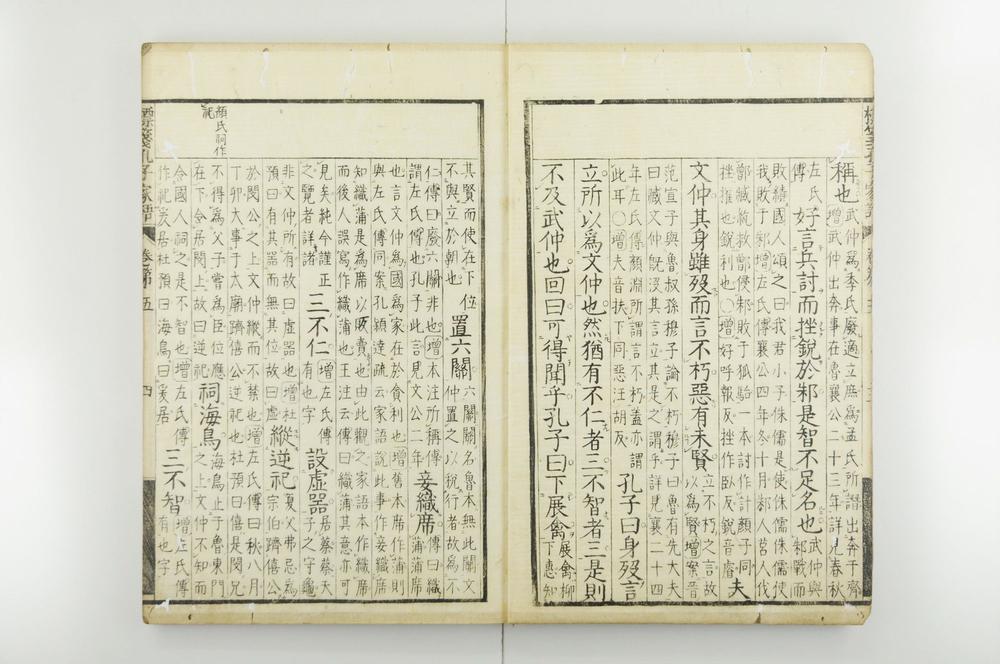 標箋孔子家語 卷第五
稱也 武仲為季氏廢適立庶為孟氏所譖出奔于齊
增武仲出奔事在魯襄公二十三年詳見春秋
左氏傳 好言兵討而挫銳於邾是智不足名也 武仲與邾戰而
敗績國人頌之曰我君小子侏儒是使侏儒侏儒使
我敗于邾增左氏傳襄公四年冬十月邾人莒人伐
鄫臧紇救鄫侵邾敗于狐駘一本討作計顏子同
挫摧也銳利也○增好呼報反挫作臥反銳音睿 夫
文仲其身雖殁而言不朽惡有未賢 立不朽之言故以為賢增案晉
范宣子與魯叔孫穆子論不朽穆子曰魯有先大夫
曰臧文仲既沒其言立其是之謂乎詳見襄二十四
年左氏傳顏淵所言不朽蓋亦謂
此耳○增夫音扶下同惡汪胡反 孔子曰身殁言
立所以為文仲也然猶有不仁者三不智者三是則
不及武仲也回曰可得聞乎孔子曰下展禽 展禽柳下惠知
其賢而使在下位
不與立於朝也 置六關 六關關名魯本無此關文
仲置之以稅行者故為不
仁傳曰廢六關非也增本注所稱傳
謂左氏傳也孔子此言見文公二年 妾織席 傳曰織
蒲蒲席
也言文仲為國為家在於貪利也增舊本席作蒲則
與左氏傳同案孔穎達疏云家語說此事作妾織席
知織蒲是為席以販賣也由此觀之家語本作織席
而後人誤寫作織蒲也王注云傳曰織蒲其意亦可
見矣純今謹正
之覽者詳諸 三不仁 增左氏傳
有也字 設虛器 居蔡蔡天
子之守龜
非文仲所有故曰虛器也增杜
預曰有其器而無其位故曰虛 縱逆祀 夏父弗忌為
宗伯躋僖公
於閔公之上文仲縱而不禁也增左氏傳曰秋八月
丁卯大事于太廟躋僖公逆祀也杜預曰僖是閔兄
不得為父子嘗為臣位應
在下令居閔上故曰逆祀 祠海鳥 海鳥止于魯東門
之上文仲不知而
令國人祠之是不智也增左氏傳
作祀爰居杜預曰海鳥曰爰居 三不智 增左氏傳
有也字
顏氏祠作祀
標箋孔子家語 卷第五 四